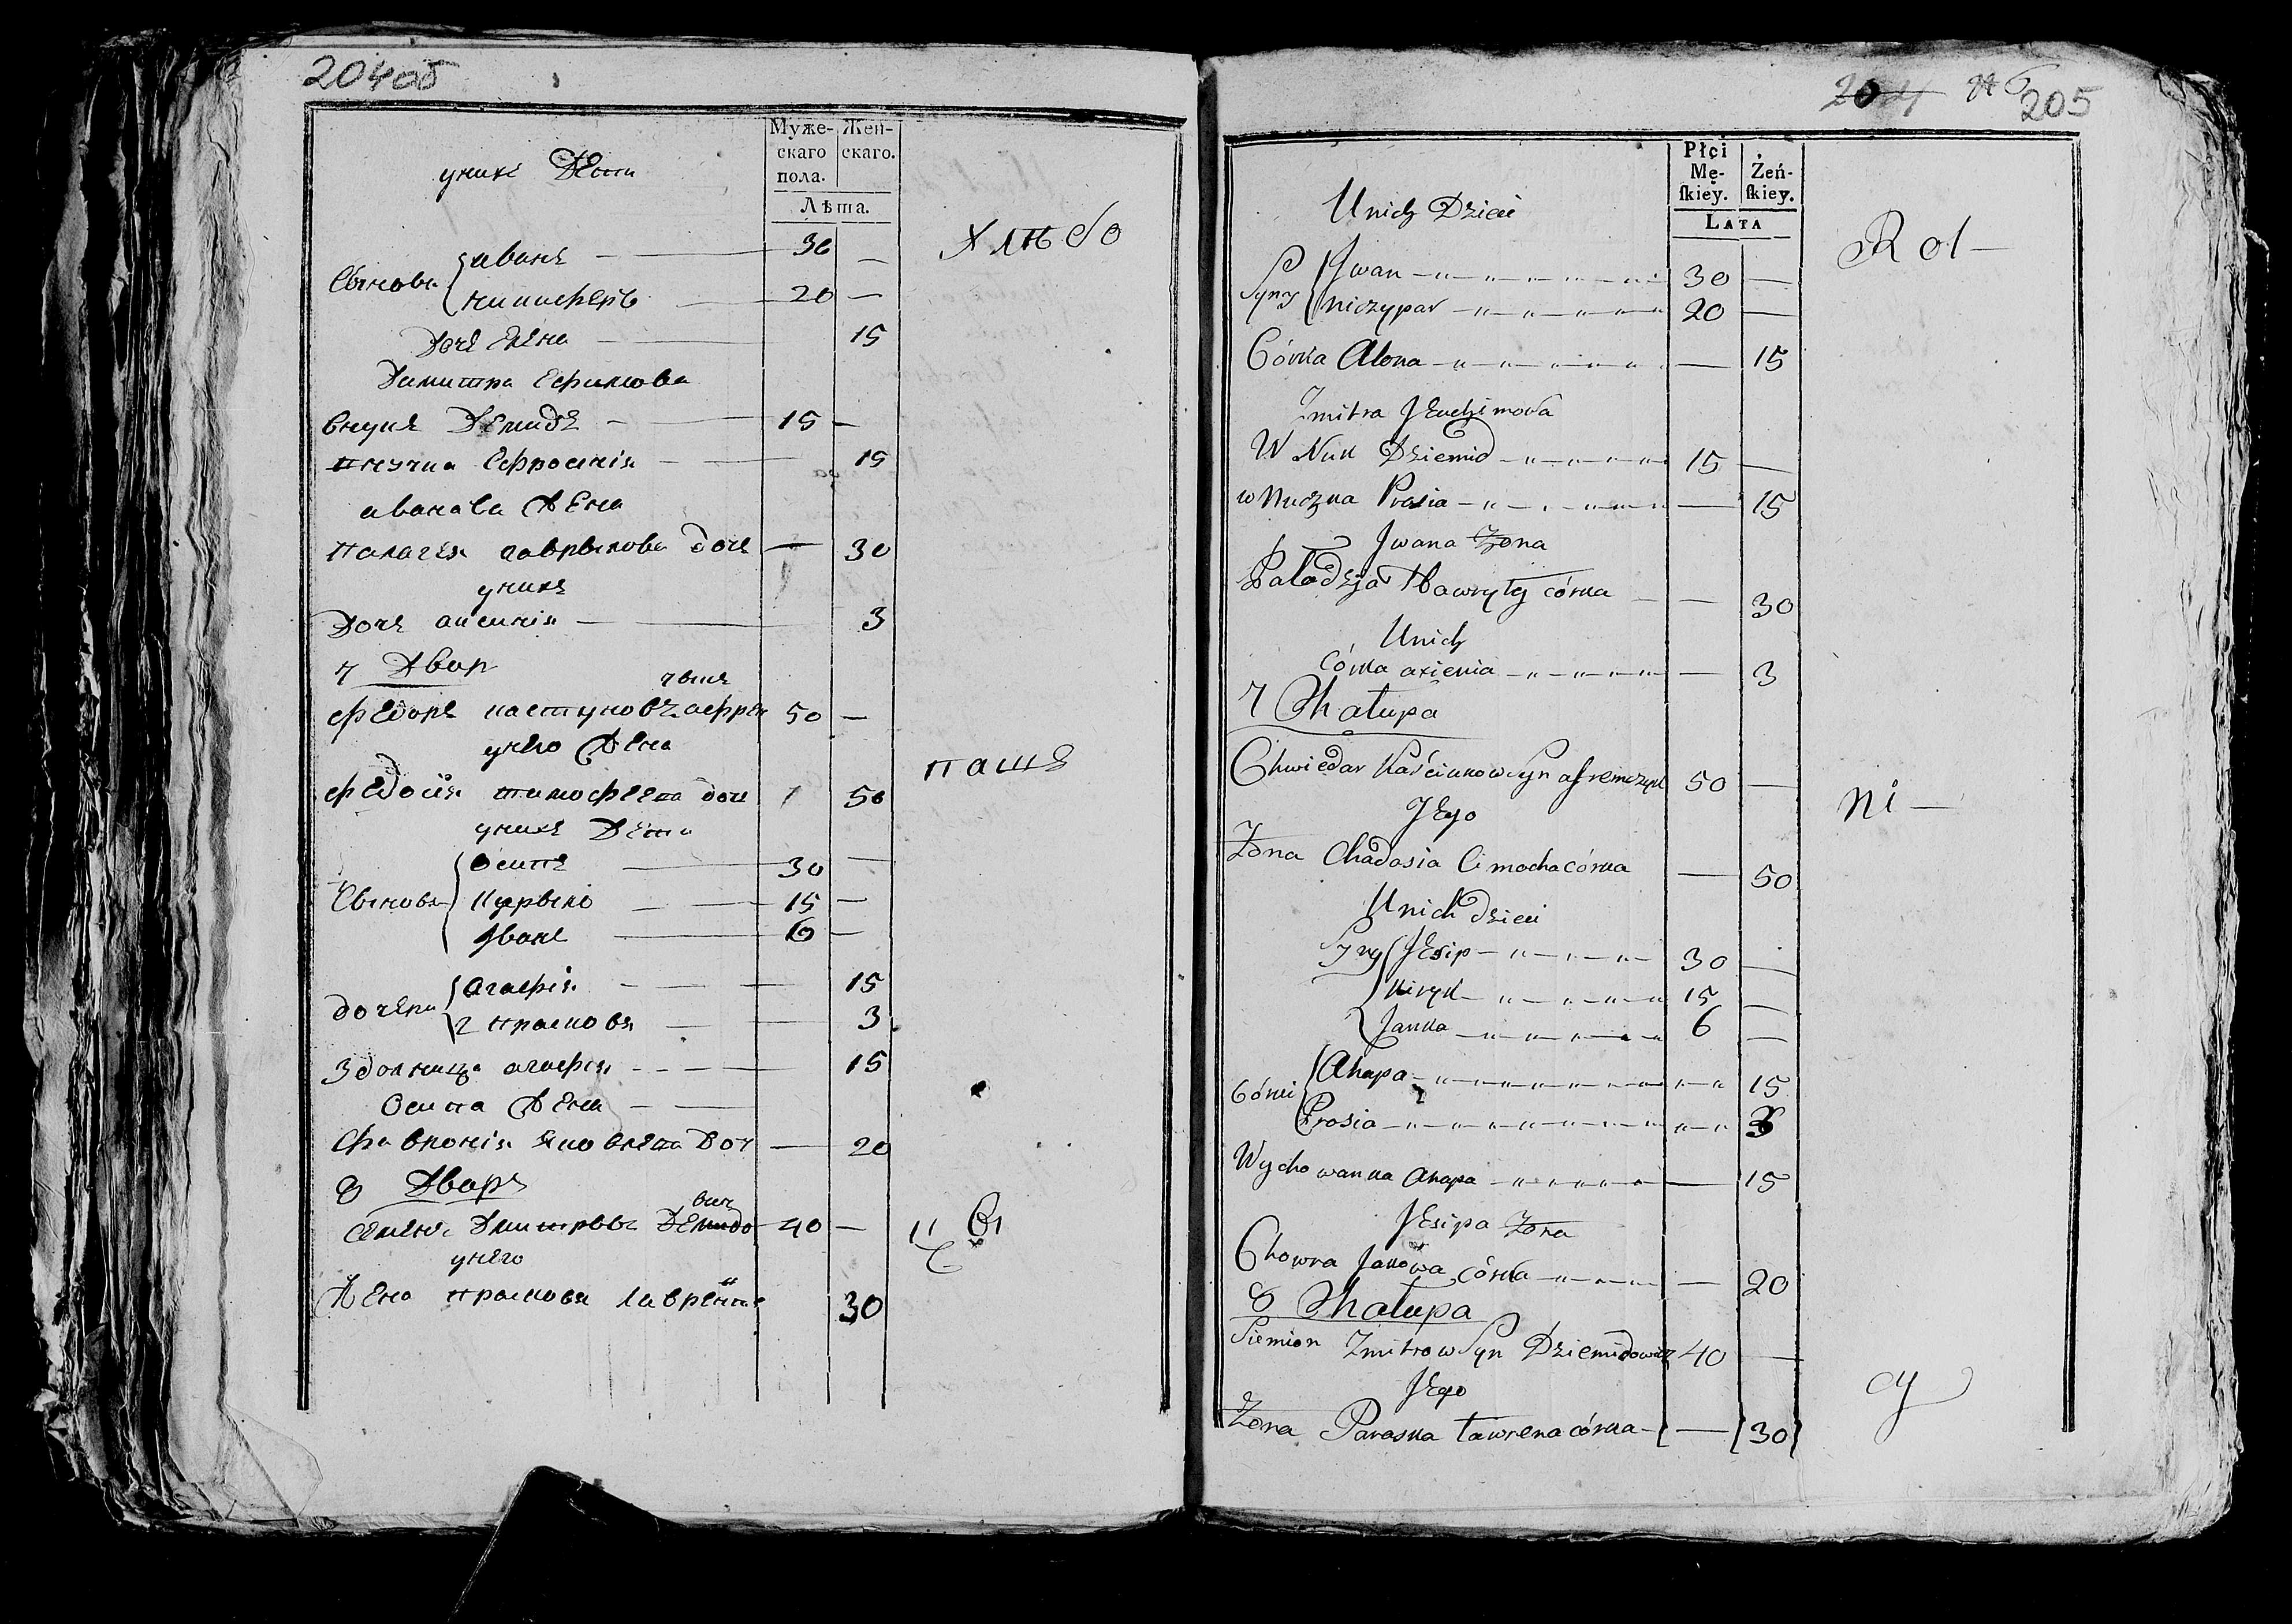 204об
Муже-
скаго
пола.
Жен-
скаго.
Лѣта.
унихъ дети
хлѣбо
Сынове
иванъ 30 —
ничиферъ 20 —
дочъ елена 15
димитра ефимова
внукъ демидъ 15 —
внучка ефросинія 15
иванава жена
палагея гаврылова доч — 30
унихъ
дочъ аксинія 3
7 двор
федоръ кастуковъ афрем чыкъ 50 —
унего жена
пашъ
федосія тимофеева доч 50
унихъ дети
Сынове
Осипъ 30 —
кирыко 15 —
Иванъ 6 —
дочери
Агафія 15
2 прасковя 3
агафія 15
Осипа жена
февронія яковлева доч — 20
8 дворъ
семенъ дмитровъ демидо вич 40 —
унего
жена прасковя лаврентя 30
204 № 6
205
Płci
Mę-
ſkiey.
Żeń-
ſkiey.
LATA
Unich Dzieci
Rol—
Syny
Jwan 30 —
Niczypar 20 —
Córka Alona — 15
Zmitra Jeuchimowa
W Nuk Dziemid 15 —
wNuczka Prosia — 15
Jwana Żona
Paładzja Hawryły córka — 30
Unich
Córka axienia — 3
7 Chałupa
Chwiedar Kaściukow Syn afremczyk 50 —
Jego
ni—
Żona Chadosia Cimocha córka — 50
Unich dzieci
Syny
Jesip 30 —
Kiryk 15 —
Janka 6 —
Córki
Ahapa 15
Prosia 3
Wychowanka Ahapa — 15
Jesipa Żona
Chowra Jakowa córka — 20
8 Chałupa
Siemion Zmitrow Syn Dziemidowicz 40 —
Jego
cy
Żona Paraska Ławrena córka — 30